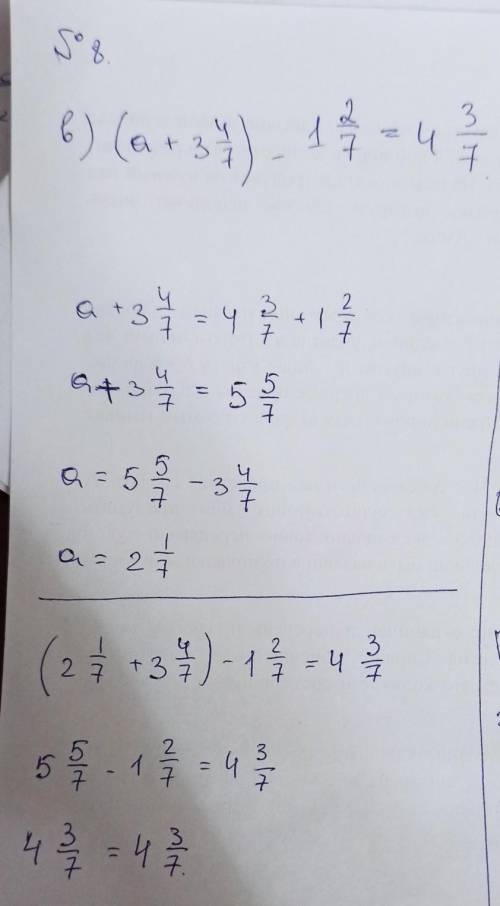 № 8.
в) (a + 3 4/7) - 1 2/7 = 4 3/7.
a + 3 4/7 = 4 3/7 + 1 2/7
a + 3 4/7 = 5 5/7
a = 5 5/7 - 3 4/7
a = 2 1/7
(2 1/7 + 3 4/7) - 1 2/7 = 4 3/7
5 5/7 - 1 2/7 = 4 3/7
4 3/7 = 4 3/7.